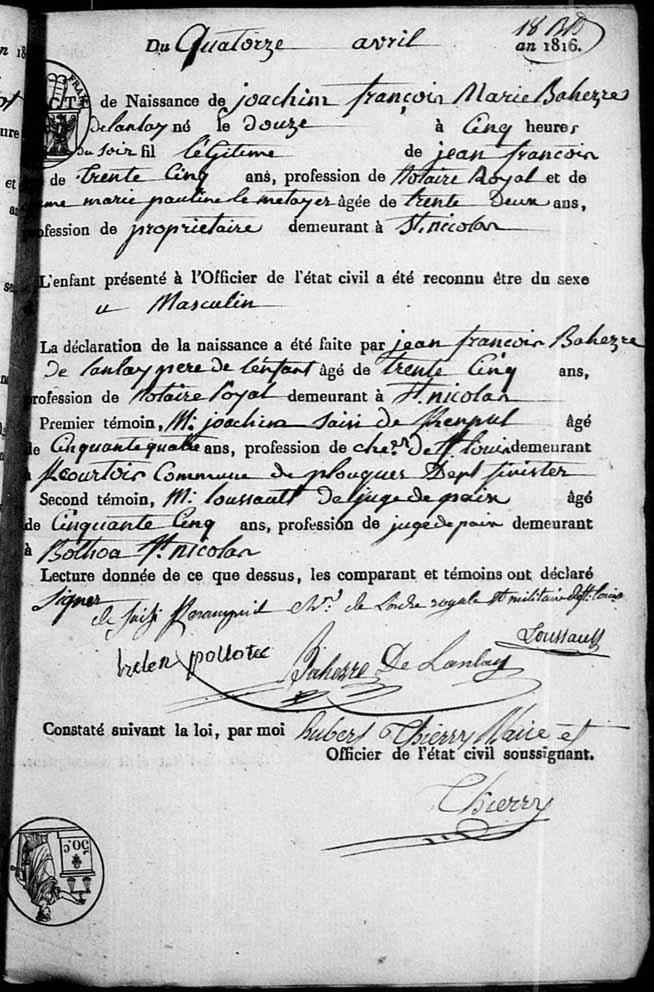 18 
Du Quatorze avril an 1816.
de Naissance de joachim françois Marie Bahezre
de lanlay né le douze à Cinq heures
du soir fil légitime de jean françois
de trente Cinq ans, profession de Notaire Royal et de
marie pauline le metayer âgée de trente Deux ans,
ofession de propriétaire demeurant à St. nicolas
L'enfant présenté à l'Officier de l'état civil a été reconnu être du sexe
Masculin
La déclaration de la naissance a été faite par jean francois Bahezre
de lanlay pere de lenfant âgé de trente Cinq ans,
rofession de Notaire royal demeurant à St. nicolas
Premier témoin, Mr. joachim de âgé
de Cinquante quatre ans, profession de cher. de St. louis demeurant
Commune de plougues Dept finister
Second témoin, Mr. loussault juge de paix âgé
de Cinquante Cinq ans, profession de juge de paix demeurant
à Bothoa St. nicolas
Lecture donnée de ce que dessus, les comparant et témoins ont déclaré
Signer
de de Lordre royale et militaire de St. louis
Loussault
pollotec Bahezre De Lanlay
Constaté suivant la loi, par moi hubert Thierry Maire et
Officier de l'état civil soussignant.
Thierry
50c